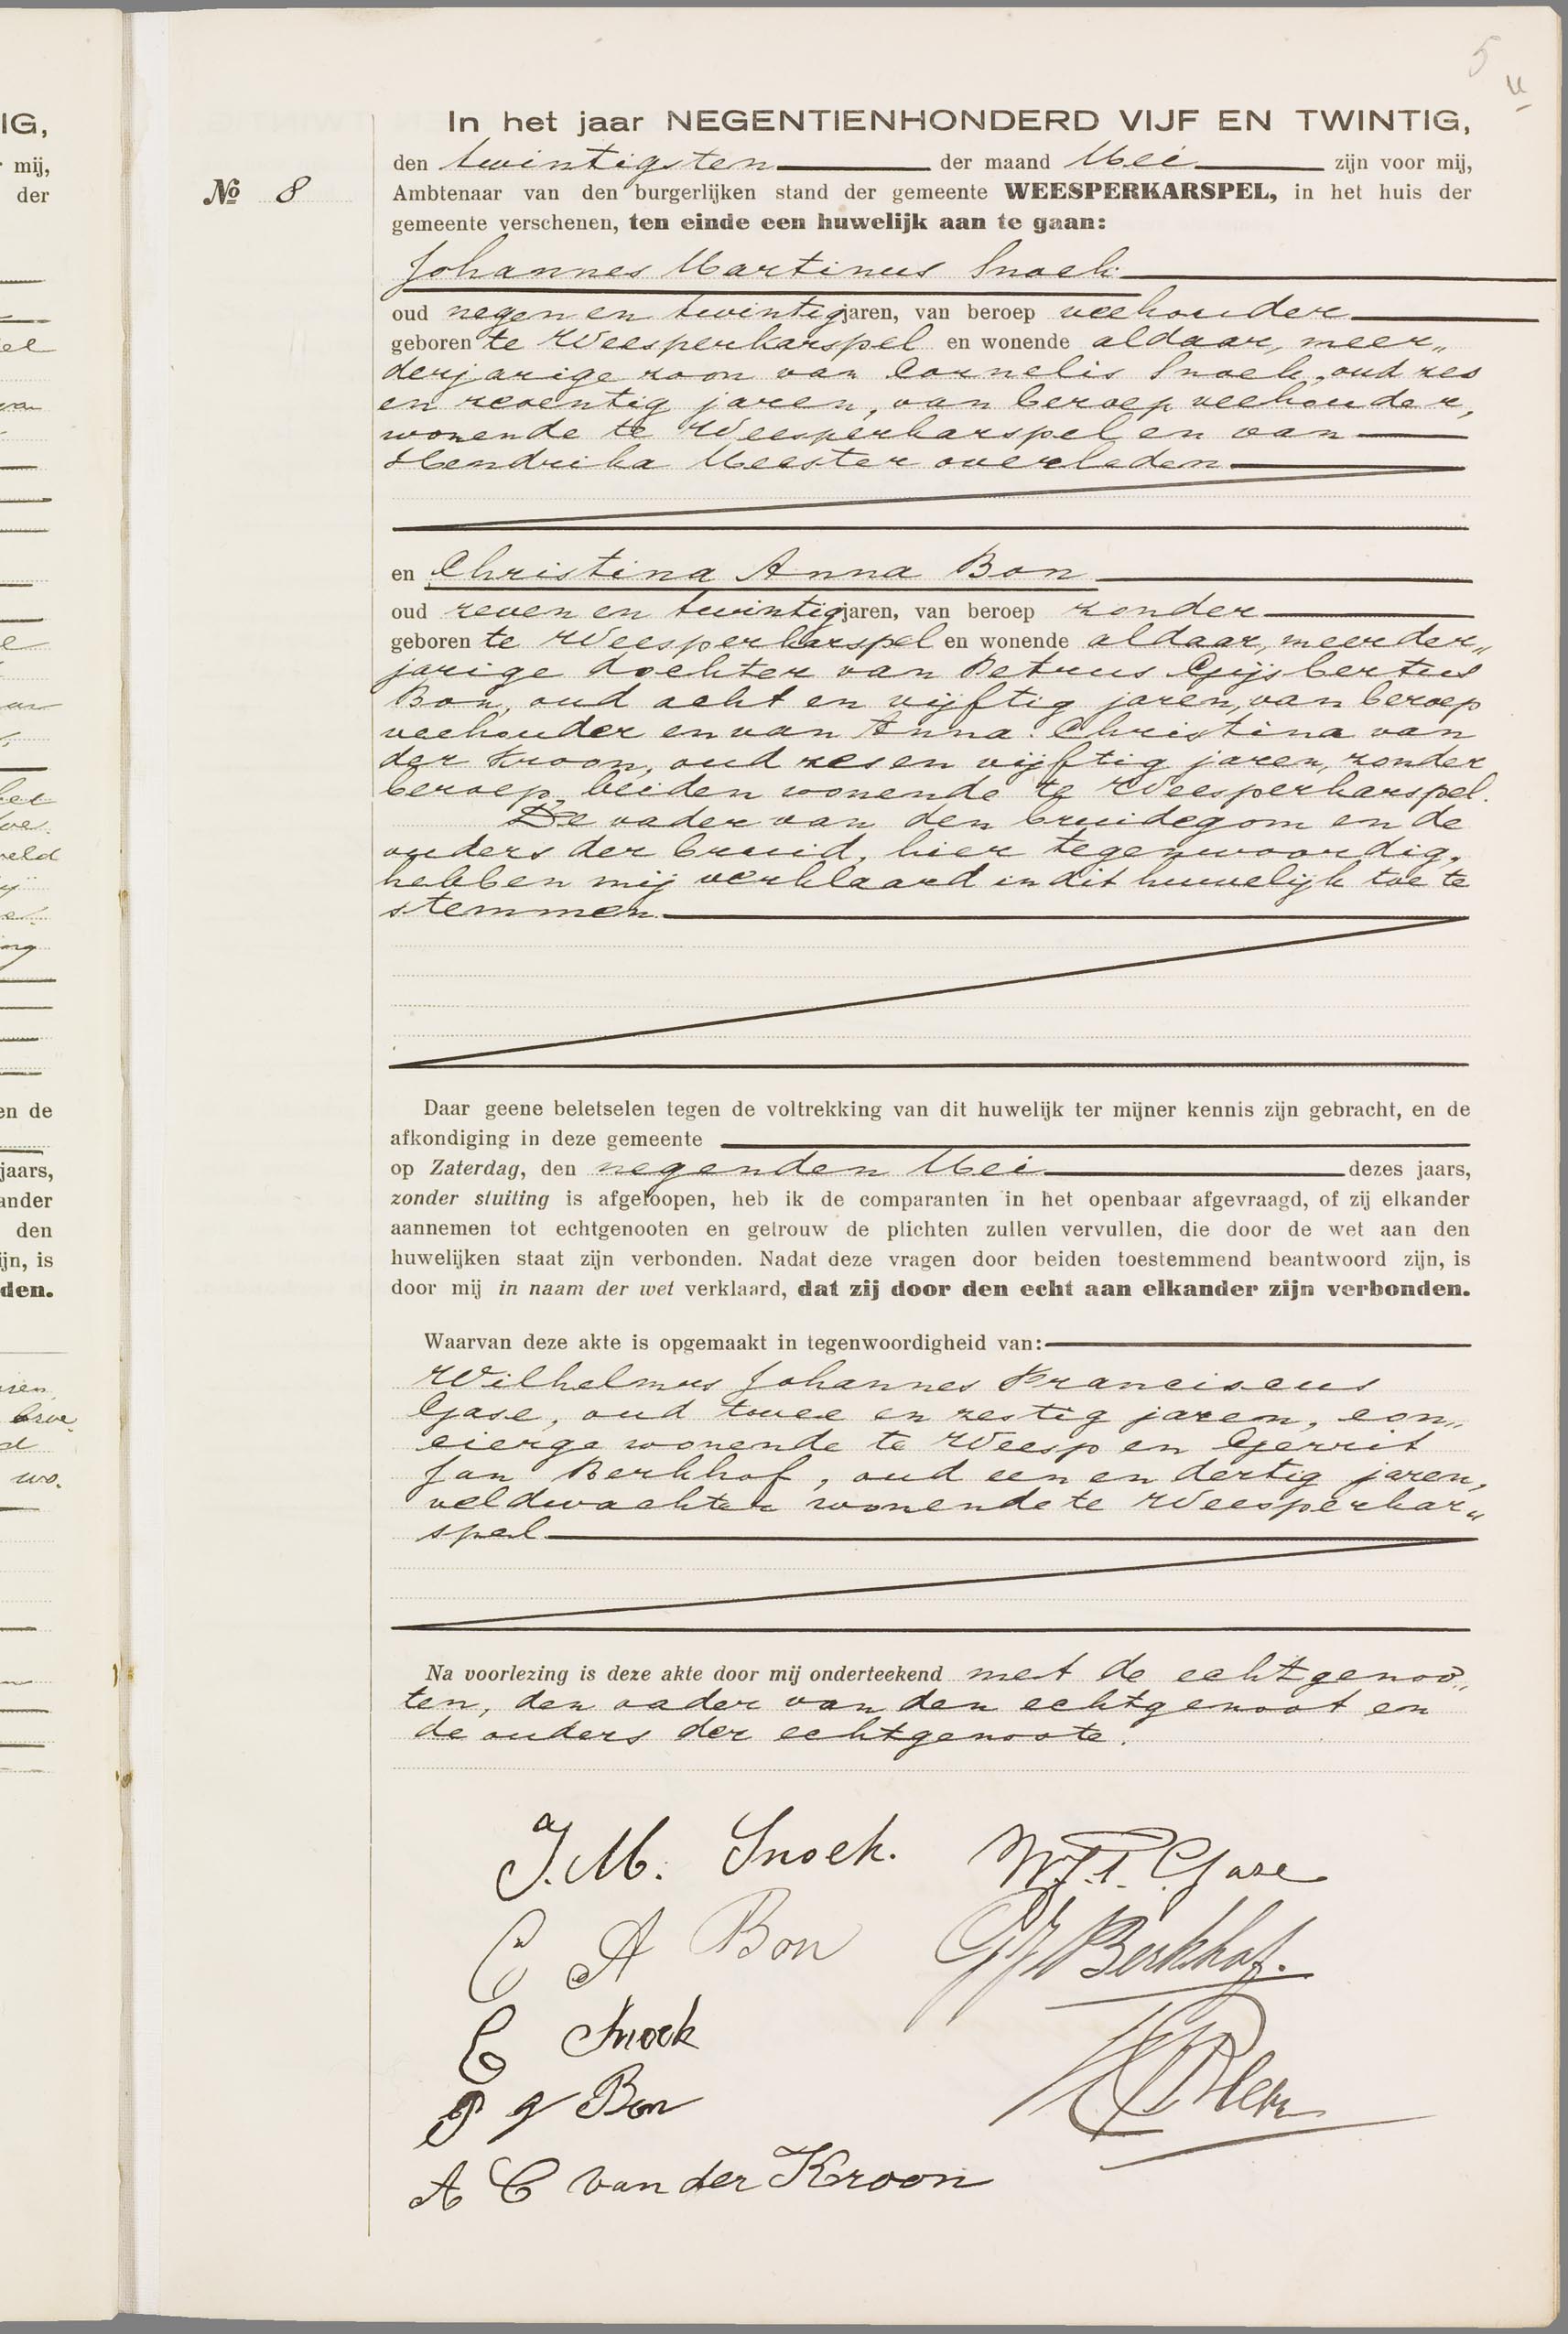 5
In het jaar NEGENTIENHONDERD VIJF EN TWINTIG,
den twintigsten der maand Mei zijn voor mij,
No 8
Ambtenaar van den burgerlijken stand der gemeente WEESPERKARSPEL, in het huis der
gemeente verschenen, ten einde een huwelijk aan te gaan:
Johannes Martinus Snoek
oud negen en twintig jaren, van beroep veehouder
geboren te Weesperkarspel en wonende aldaar, meer„
derjarige zoon van Cornelis Snoek, oud zes
en zeventig jaren, van beroep veehouder,
wonende te Weesperkarspel en van
Hendrika Meester overleden
en Christina Anna Bon
oud zeven en twintig jaren, van beroep zonder
geboren te Weesperkarspel en wonende aldaar, meerder„
jarige dochter van Petrus Gijsbertus
Bon, oud acht en vijftig jaren, van beroep
veehouder en van Anna Christina van
der Kroon, oud zes en vijftig jaren, zonder
beroep, beiden wonende te Weesperkarspel.
De vader van den bruidegom en de
ouders der bruid, hier tegenwoordig,
hebben mij verklaard in dit huwelijk toe te
stemmen.
Daar geene beletselen tegen de voltrekking van dit huwelijk ter mijner kennis zijn gebracht, en de
afkondiging in deze gemeente
op Zaterdag, den negenden Mei dezes jaars,
zonder stuiting is afgeloopen, heb ik de comparanten in het openbaar afgevraagd, of zij elkander
aannemen tot echtgenooten en getrouw de plichten zullen vervullen, die door de wet aan den
huwelijken staat zijn verbonden. Nadat deze vragen door beiden toestemmend beantwoord zijn, is
door mij in naam der wet verklaard, dat zij door den echt aan elkander zijn verbonden.
Waarvan deze akte is opgemaakt in tegenwoordigheid van:
Wilhelmus Johannes Franciscus
Gase, oud twee en zestig jaren, con„
cierge wonende te Weesp en Gerrit
Jan Berkhof, oud een en dertig jaren,
veldwachter wonende te Weesperkar„
spel
Na voorlezing is deze akte door mij onderteekend met de echtgenoo„
ten, den vader van den echtgenoot en
de ouders der echtgenoote.
J. M. Snoek. W.J.F. Gase
C A Bon GJ Berkhof.
C Snoek
P g Bon
A C van der Kroon